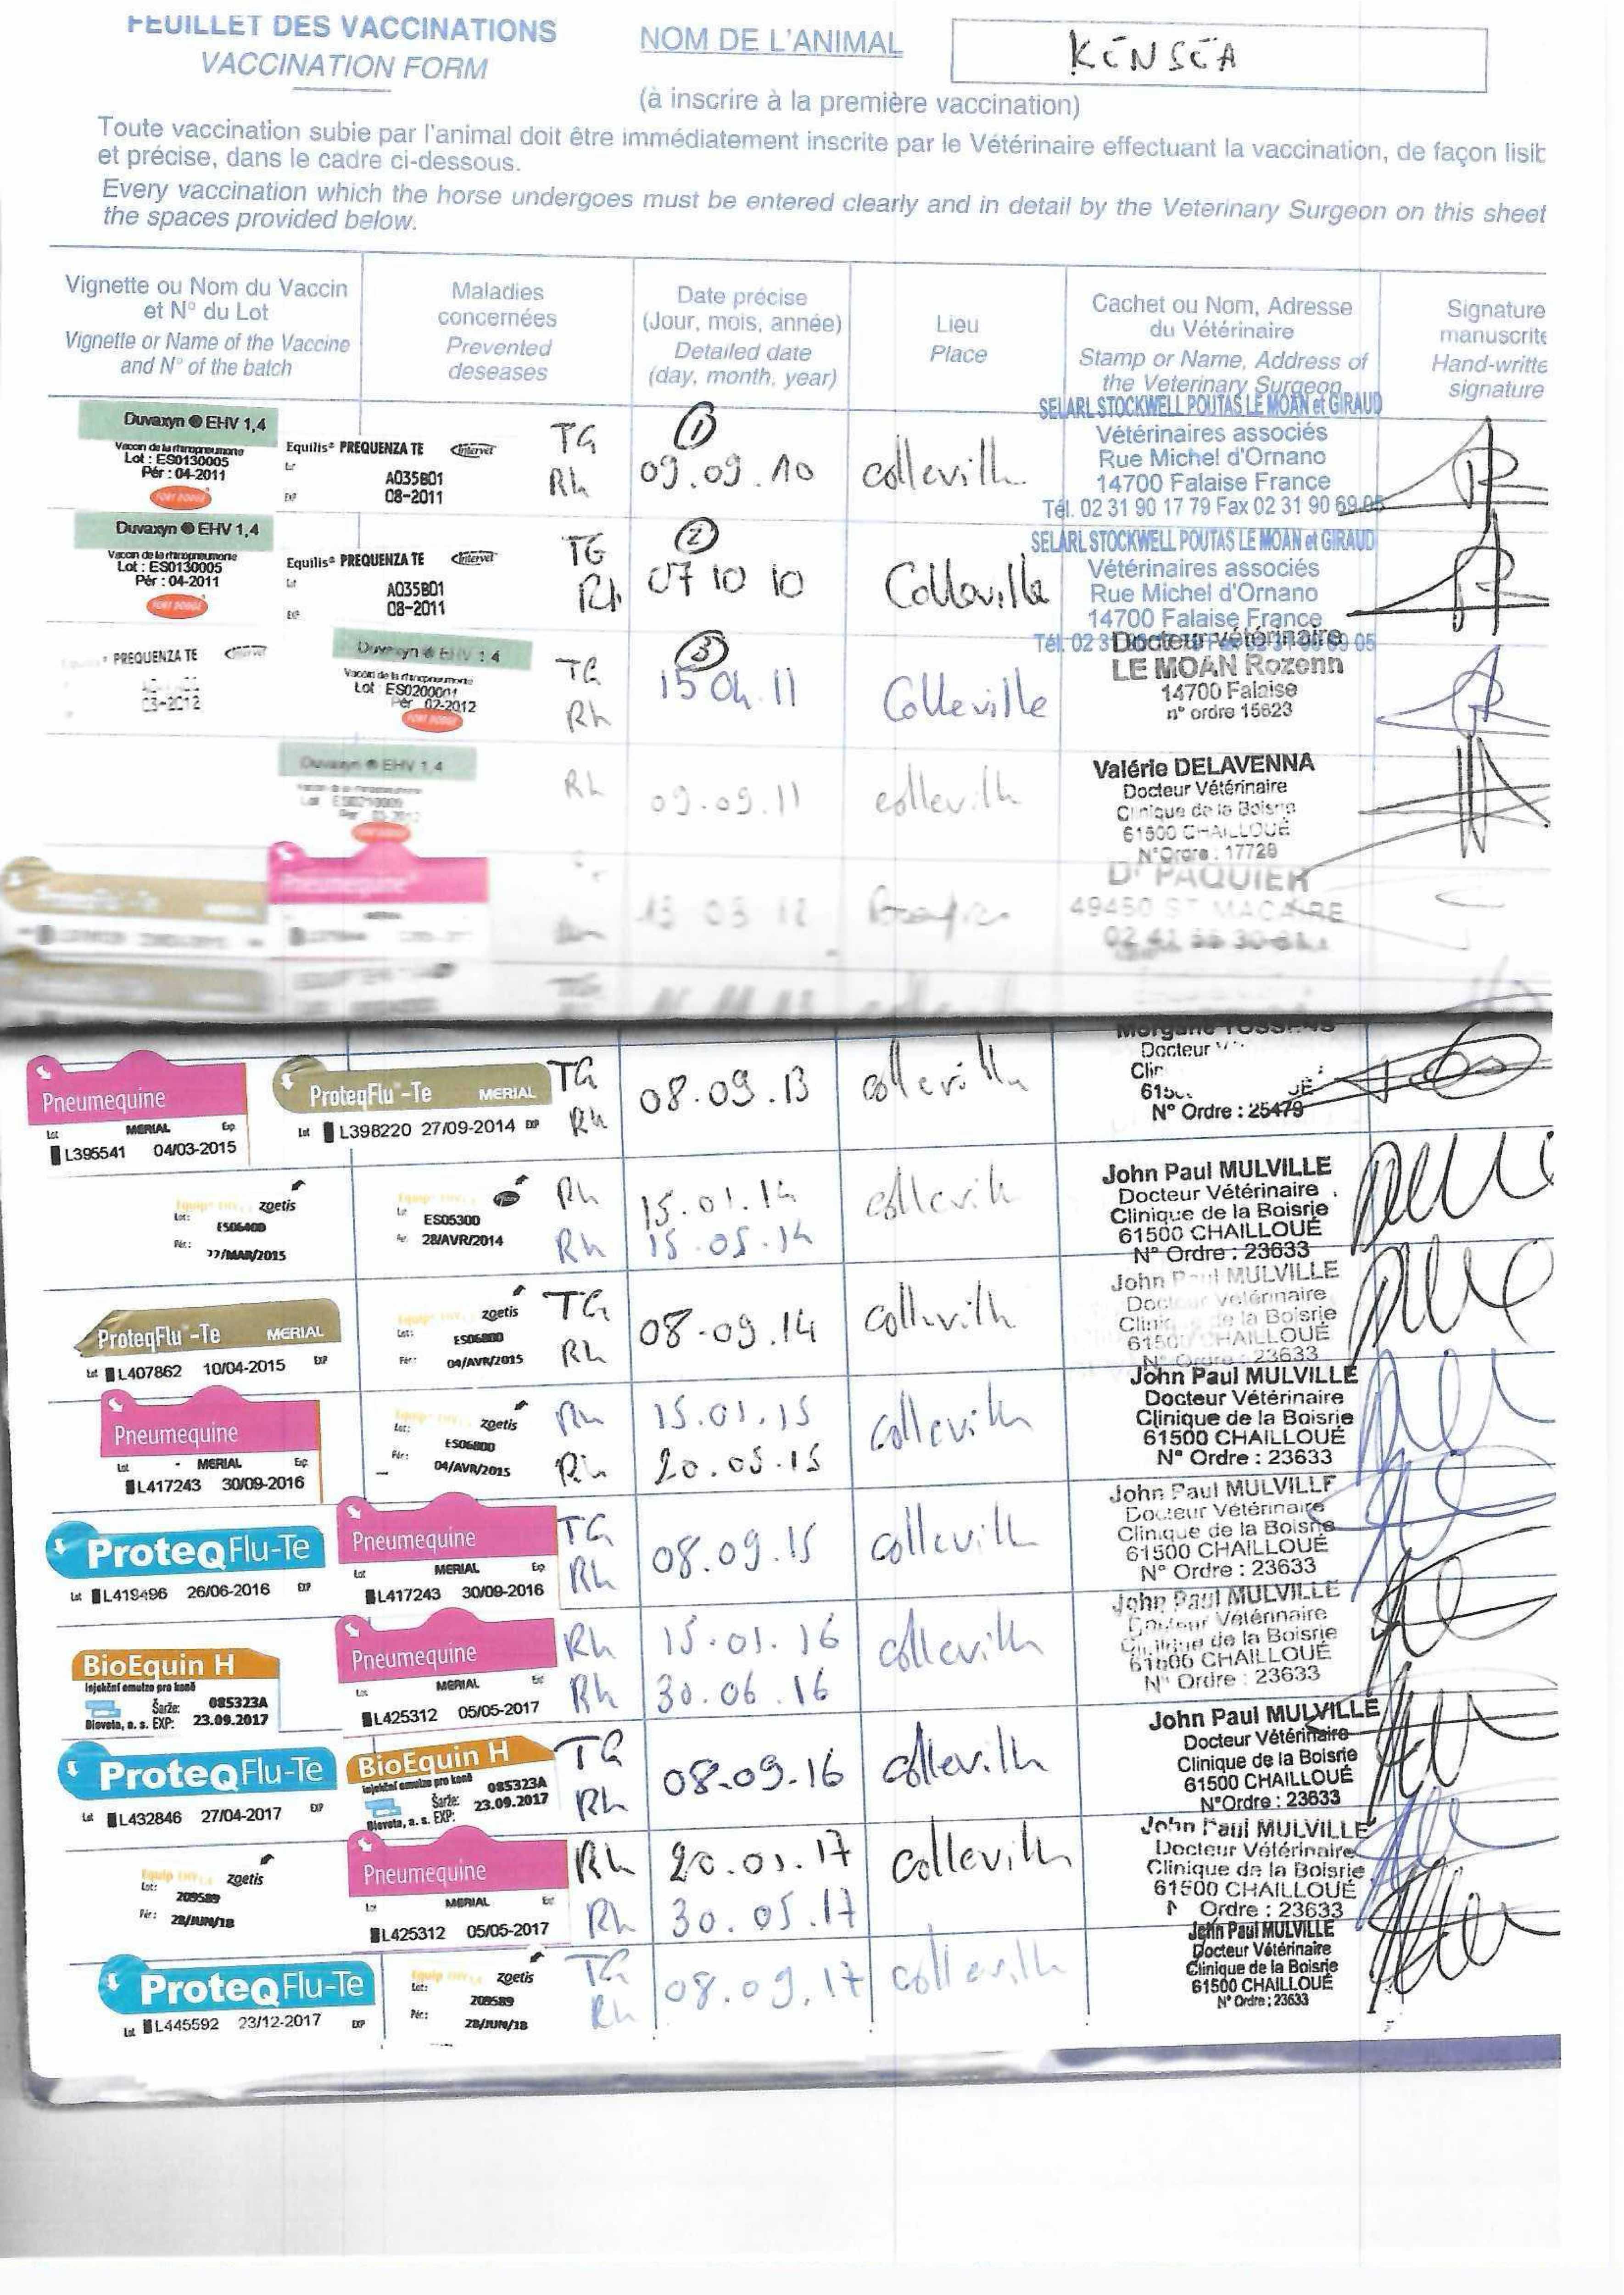 FEUILLET DES VACCINATIONS
VACCINATION FORM
NOM DE L'ANIMAL
KENSEA
(à inscrire à la première vaccination)
Toute vaccination subie par l'animal doit être immédiatement inscrite par le Vétérinaire effectuant la vaccination, de façon lisib
et précise, dans le cadre ci-dessous.
Every vaccination which the horse undergoes must be entered clearly and in detail by the Veterinary Surgeon on this sheet
the spaces provided below.
Vignette ou Nom du Vaccin
et N° du Lot
Vignette or Name of the Vaccine
and N° of the batch
Maladies
concernées
Prevented
deseases
Date précise
(Jour, mois, année)
Detailed date
(day, month, year)
Lieu
Place
Cachet ou Nom, Adresse
du Vétérinaire
Stamp or Name, Address of
the Veterinary Surgeon
Signature
manuscrite
Hand-writte
signature
Duvaxyn EHV 1,4
Vaccin de la rhinopneumonie
Lot : ES0130005
Pér : 04-2011
FORT DODGE
Equilis® PREQUENZA TE Intervet
Lot A035B01
EXP 08-2011
TG
Rh
1
09.09.10
colleville
SELARL STOCKWELL POUTAS LE MOAN et GIRAUD
Vétérinaires associés
Rue Michel d'Ornano
14700 Falaise France
Tél. 02 31 90 17 79 Fax 02 31 90 69 05
Duvaxyn EHV 1,4
Vaccin de la rhinopneumonie
Lot : ES0130005
Pér : 04-2011
FORT DODGE
Equilis® PREQUENZA TE Intervet
Lot A035B01
EXP 08-2011
TG
Rh
2
07 10 10
Colleville
SELARL STOCKWELL POUTAS LE MOAN et GIRAUD
Vétérinaires associés
Rue Michel d'Ornano
14700 Falaise France
PREQUENZA TE Intervet
03-2012
Duvaxyn EHV 1,4
Vaccin de la rhinopneumonie
Lot : ES0200001
Pér 02-2012
FORT DODGE
TG
Rh
3
15 04.11
Colleville
Docteur vétérinaire
LE MOAN Rozenn
14700 Falaise
n° ordre 15623
Duvaxyn EHV 1,4
Rh
09.09.11
colleville
Valérie DELAVENNA
Docteur Vétérinaire
Clinique de la Boisrie
61500 CHAILLOUÉ
N°Ordre : 17728
ProteqFlu-Te
Pneumequine
13 03 12
Dr PAQUIER
49450 ST MACAIRE
TG
colleville
Pneumequine
MERIAL
Lot Exp
L395541 04/03-2015
ProteqFlu-Te MERIAL
Lot L398220 27/09-2014 EXP
TG
Rh
08.09.13
colleville
Docteur
N° Ordre : 25479
zoetis
Lot: ES06400
Pér: ??/MAR/2015
ES05300
28/AVR/2014
Rh
Rh
15.01.14
15.05.14
colleville
John Paul MULVILLE
Docteur Vétérinaire
Clinique de la Boisrie
61500 CHAILLOUÉ
N° Ordre : 23633
ProteqFlu-Te MERIAL
Lot L407862 10/04-2015 EXP
zoetis
Lot: ES06800
Pér: 04/AVR/2015
TG
Rh
08.09.14
colleville
John Paul MULVILLE
Docteur Vétérinaire
Clinique de la Boisrie
61500 CHAILLOUÉ
N° Ordre : 23633
Pneumequine
MERIAL
Lot Exp
L417243 30/09-2016
zoetis
Lot: ES06800
Pér: 04/AVR/2015
Rh
Rh
15.01.15
20.05.15
colleville
John Paul MULVILLE
Docteur Vétérinaire
Clinique de la Boisrie
61500 CHAILLOUÉ
N° Ordre : 23633
ProteqFlu-Te
Lot L419496 26/06-2016 EXP
Pneumequine
MERIAL
Lot Exp
L417243 30/09-2016
TG
Rh
08.09.15
colleville
John Paul MULVILLE
Docteur Vétérinaire
Clinique de la Boisrie
61500 CHAILLOUÉ
N° Ordre : 23633
BioEquin H
Injekční emulze pro koně
Šarže: 085323A
Bioveta, a. s. EXP: 23.09.2017
Pneumequine
MERIAL
L425312 05/05-2017
Rh
Rh
15.01.16
30.06.16
colleville
John Paul MULVILLE
Docteur Vétérinaire
Clinique de la Boisrie
61500 CHAILLOUÉ
N° Ordre : 23633
ProteqFlu-Te
Lot L432846 27/04-2017 EXP
BioEquin H
Injekční emulze pro koně
Šarže: 085323A
Bioveta, a. s. EXP: 23.09.2017
TG
Rh
08.09.16
colleville
John Paul MULVILLE
Docteur Vétérinaire
Clinique de la Boisrie
61500 CHAILLOUÉ
N°Ordre : 23633
zoetis
Lot: 209589
Pér: 28/JUN/18
Pneumequine
MERIAL
L425312 05/05-2017
Rh
Rh
20.01.17
30.05.17
colleville
John Paul MULVILLE
Docteur Vétérinaire
Clinique de la Boisrie
61500 CHAILLOUÉ
Ordre : 23633
ProteqFlu-Te
Lot L445592 23/12-2017 EXP
zoetis
Lot: 209589
Pér: 28/JUN/18
TG
Rh
08.09.17
colleville
John Paul MULVILLE
Docteur Vétérinaire
Clinique de la Boisrie
61500 CHAILLOUÉ
N° Ordre : 23633